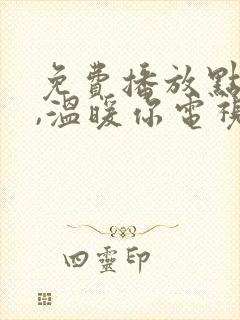 免費播放點
,溫暖你電視
四靈印